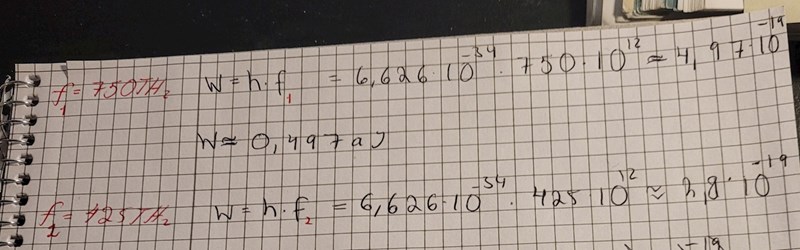 f₁ = 750THz W = h·f₁ = 6,626·10⁻³⁴ · 750·10¹² ≈ 4,97·10⁻¹⁹
W ≈ 0,497 aJ
f₂ = 425THz W = h·f₂ = 6,626·10⁻³⁴ · 425 10¹² ≈ 2,8·10⁻¹⁹
-19